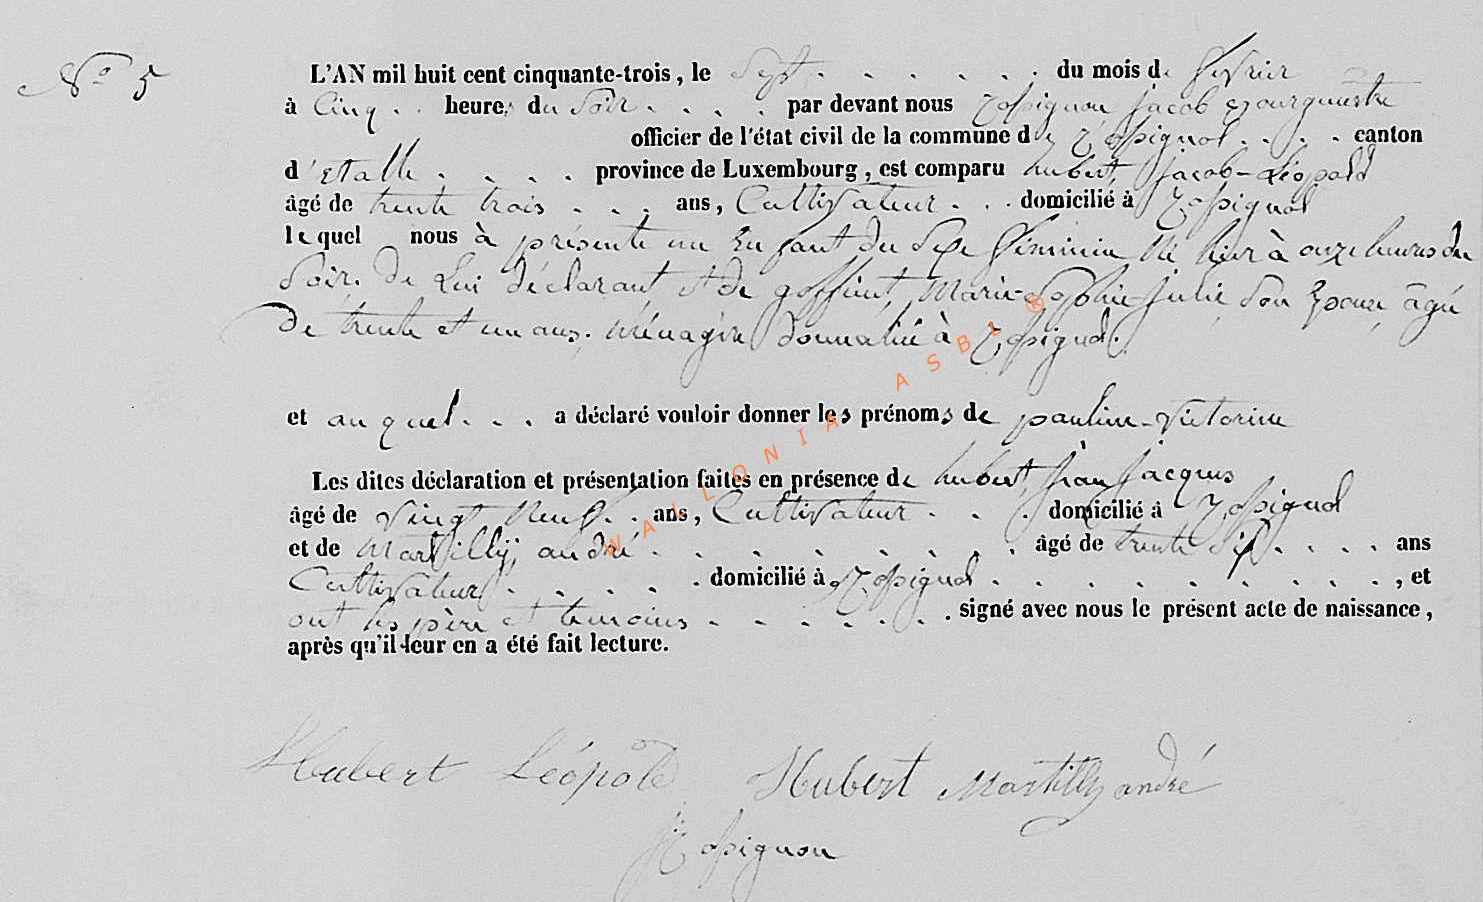 N° 5
L'AN mil huit cent cinquante-trois, le Sept . . . . . . du mois de février
à Cinq . . heures du Soir . . . . par devant nous Jacob Bourguestre
officier de l'état civil de la commune de . . . . canton
d'Etalle . . . . province de Luxembourg, est comparu hubert, Jacob-Léopold
âgé de trente trois . . . ans, Cultivateur . . . domicilié à
lequel nous à présenté un Enfant du Sexe féminin Né hier à onze heures du
Soir. de Lui déclarant et de goffinet, Marie-Sophie-Julie Son Epouse âgée
De trente et un ans. Ménagère domicilié à
et auquel . . . a déclaré vouloir donner les prénoms de pauline-Victorine
Les dites déclaration et présentation faites en présence de hubert, Jean Jacques
âgé de vingt Neuf . . ans, Cultivateur . . . domicilié à
et de Martilly, andré . . . . . . . . . âgé de trente Six . . . . ans
Cultivateur . . . . . domicilié à . . . . . . . . . . , et
ont les père et temoins . . . . . . . signé avec nous le présent acte de naissance,
après qu'il leur en a été fait lecture.
Hubert Léopold Hubert Martilly andré
WALLONIA ASBL ®